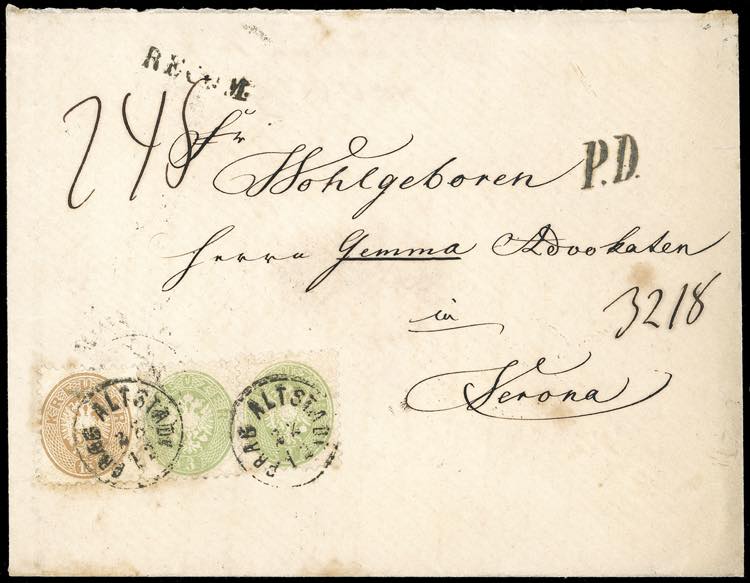 RECOM.
248
Sr
Wohlgeboren
P.D.
Herrn Gemma Advokaten
in
3218
Verona
PRAG ALTSTADT
PRAG ALTSTADT